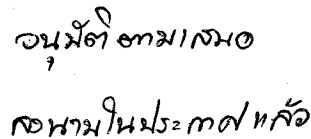 อนุมัติตามเสนอ
ลงนามในประกาศแล้ว